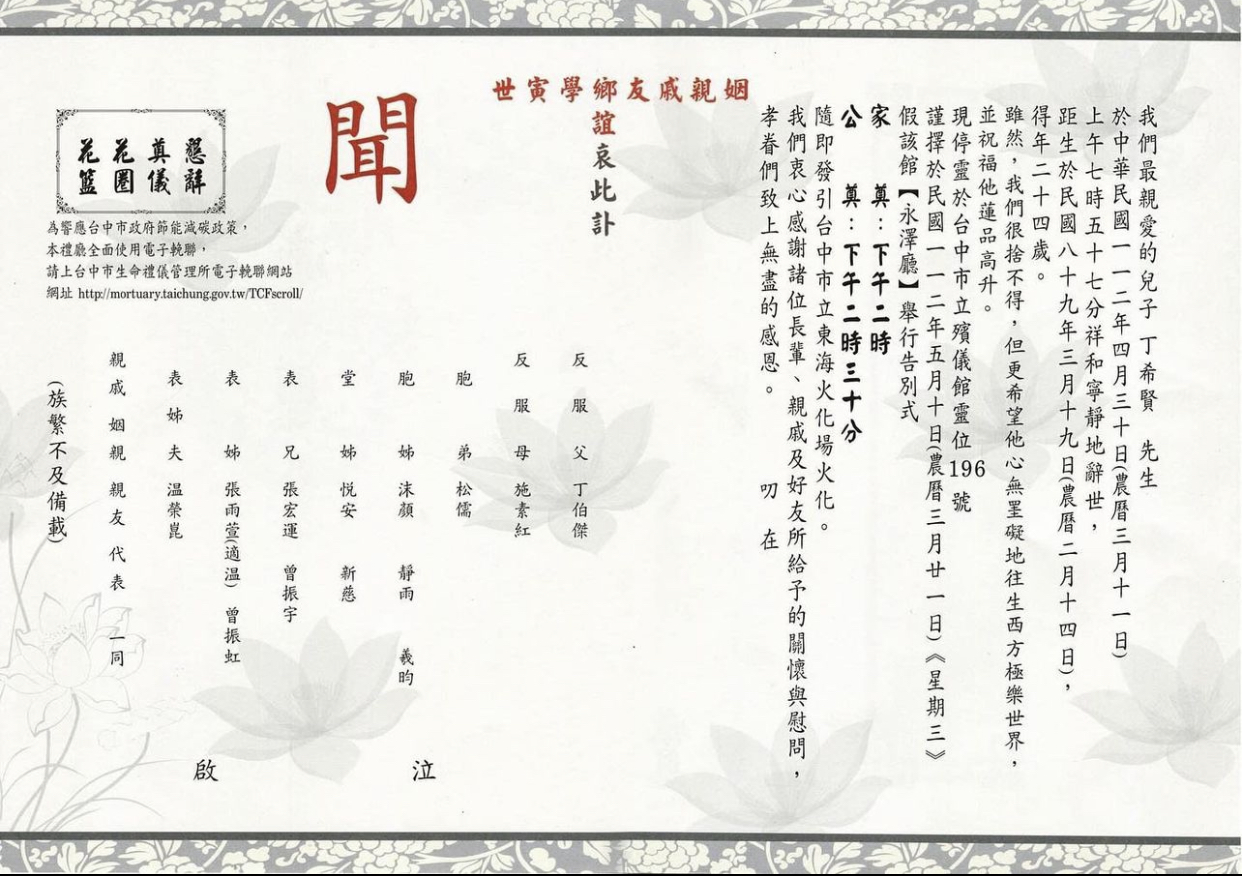 我們最親愛的兒子 丁希賢 先生
於中華民國一一二年四月三十日(農曆三月十一日)
上午七時五十七分祥和寧靜地辭世，
距生於民國八十九年三月十九日(農曆二月十四日)，
得年二十四歲。
雖然，我們很捨不得，但更希望他心無罣礙地往生西方極樂世界，
並祝福他蓮品高升。
現停靈於台中市立殯儀館靈位196號
謹擇於民國一一二年五月十日(農曆三月廿一日)《星期三》
假該館【永澤廳】舉行告別式
家 奠：下午二時
公 奠：下午二時三十分
隨即發引台中市立東海火化場火化。
我們衷心感謝諸位長輩、親戚及好友所給予的關懷與慰問，
孝眷們致上無盡的感恩。 叨 在
姻親戚友鄉學寅世
誼哀此訃
聞
反服父 丁伯傑
反服母 施素紅
胞弟 松儒
胞姊 沫顏 靜雨 羲昀
堂姊 悅安 新慈
表兄 張宏運 曾振宇
表姊 張雨萱(適溫) 曾振虹
表姊夫 溫榮崑
親戚姻親親友代表 一同
(族繁不及備載)
泣
啟
懇辭
奠儀
花圈
花籃
為響應台中市政府節能減碳政策，
本禮廳全面使用電子輓聯，
請上台中市生命禮儀管理所電子輓聯網站
網址 http://mortuary.taichung.gov.tw/TCFscroll/